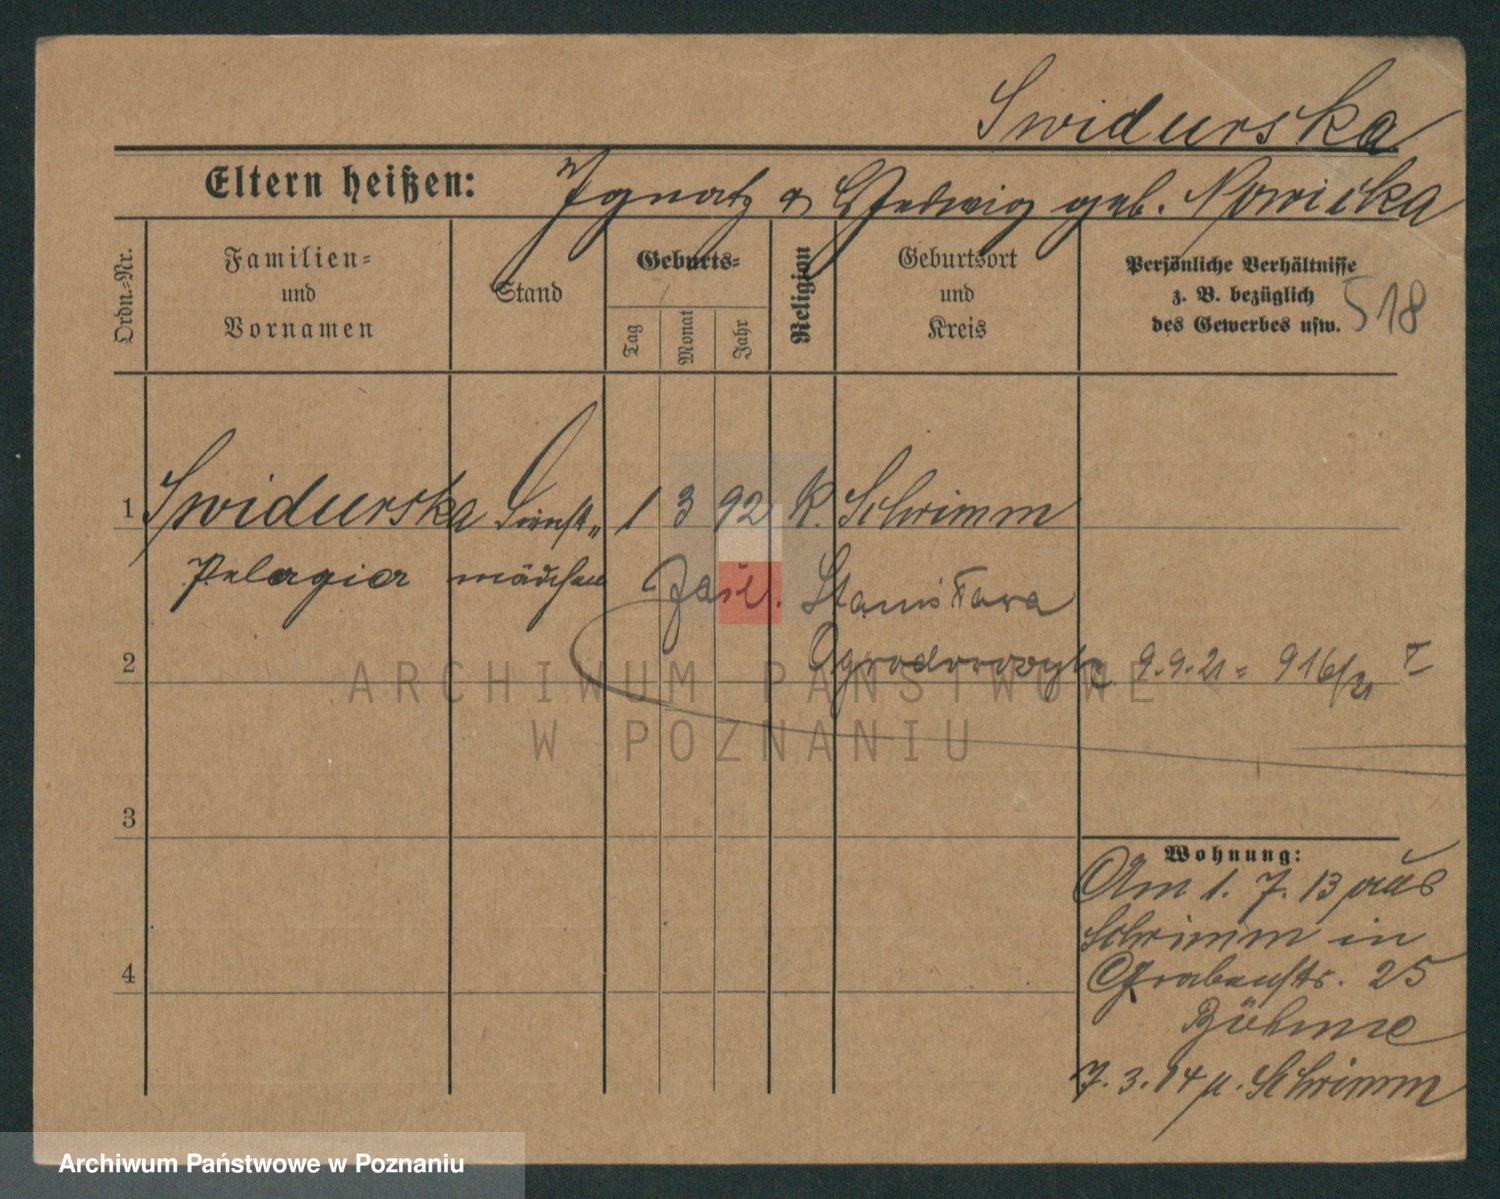 Swidurska
Eltern heißen: Ignatz & Hedwig geb. Nowicka
Ordn.-Nr.
Familien- und Vornamen
Stand
Geburts-
Tag
Monat
Jahr
Religion
Geburtsort und Kreis
Persönliche Verhältnisse
z. B. bezüglich
des Gewerbes usw.
518
1 Swidurska Dienst- 1 3 92 K. Schrimm
Pelagia mädchen
Stanisława
2 9.9.21 = 916/21 I
3
4
Wohnung:
Am 1. 7. 13 aus
Schrimm in
Grabenstr. 25
Böhme
7. 3. 14 n. Schrimm
ARCHIWUM PAŃSTWOWE
W POZNANIU
Archiwum Państwowe w Poznaniu